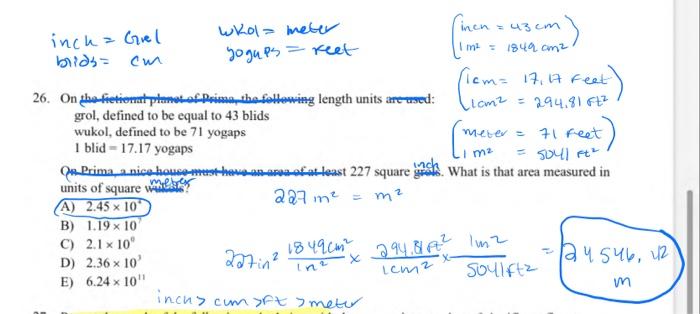 inch = Grel
blids = cm
wkol = meter
yogaps = feet
inch = 43 cm
1 in² = 1849 cm²
1cm = 17.17 feet
1cm² = 294.81 ft²
meter = 71 feet
1 m² = 5041 ft²
26. On the fictional planet of Prima, the following length units are used:
grol, defined to be equal to 43 blids
wukol, defined to be 71 yogaps
1 blid = 17.17 yogaps
inch
On Prima, a nice house must have an area of at least 227 square grols. What is that area measured in
meter
units of square wukols?
227 in² = m²
A) 2.45 × 10⁴
B) 1.19 × 10⁷
C) 2.1 × 10⁰
D) 2.36 × 10³
E) 6.24 × 10¹¹
227in² 1849cm² / in² × 294.81 ft² / 1cm² × 1m² / 5041ft² = 24546.42
m
inch > cm > ft > meter